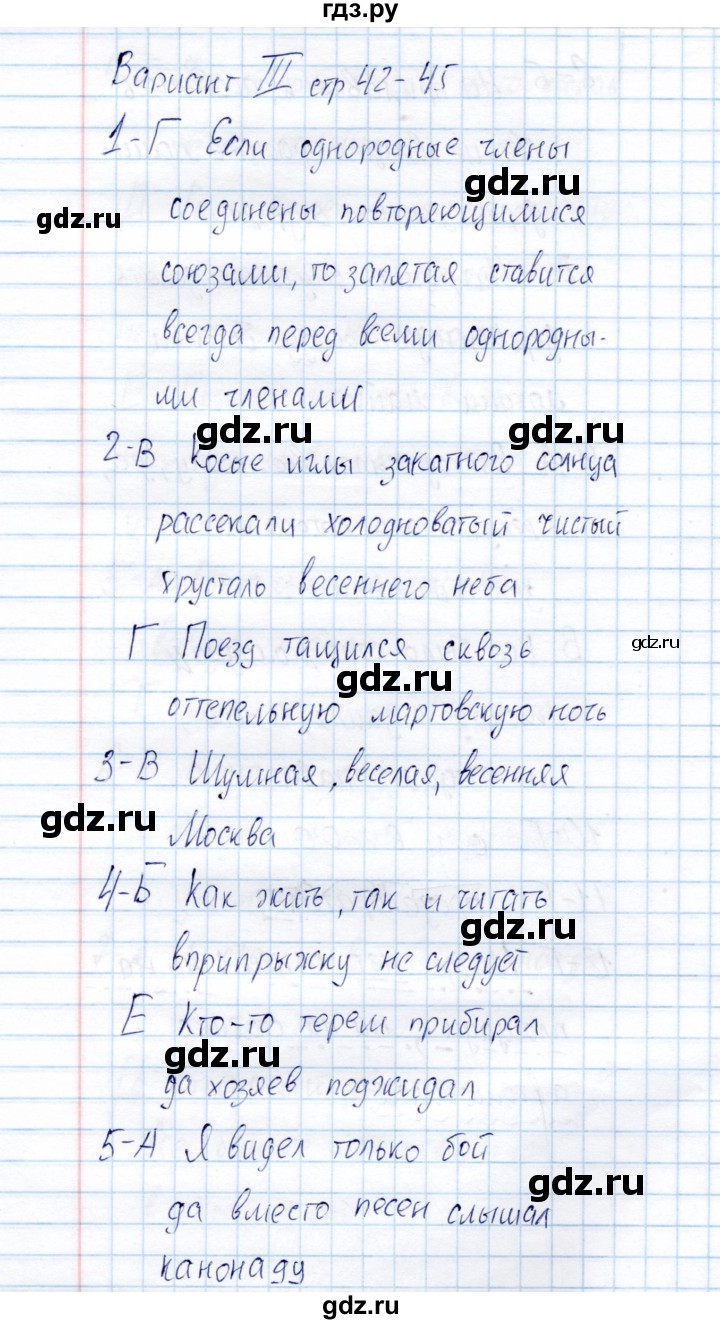 гдз.ру
Вариант III стр 42-45
1-Г Если однородные члены
gdz.ru
gdz.ru
соединены повторяющимися
союзами, то запятая ставится
всегда перед всеми однородны-
ми членами
gdz.ru
gdz.ru
2-В Косые иглы закатного солнца
рассекали холодноватый чистый
хрусталь весеннего неба.
Г Поезд тащился сквозь
gdz.ru
gdz.ru
оттепельную мартовскую ночь
3-В Шумная, веселая, весенняя
gdz.ru
Москва
4-Б Как жить, так и читать
gdz.ru
вприпрыжку не следует
Е Кто-то терем прибирал
gdz.ru
да хозяев поджидал
5-А Я видел только бой
gdz.ru
да вместо песен слышал
канонаду
gdz.ru